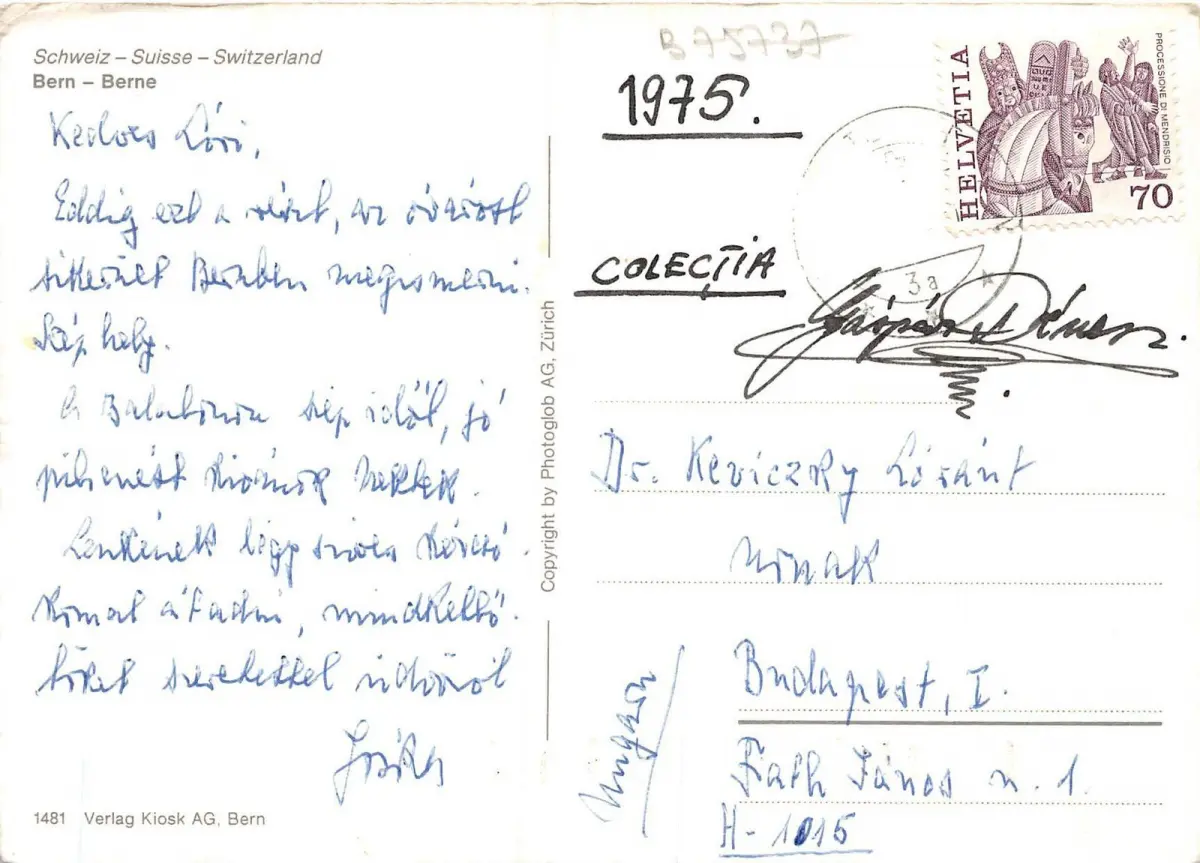 Schweiz – Suisse – Switzerland
Bern – Berne
Kedves Lóri,
Eddig ezt a részt, az óvárost
sikerült Bernben megismerni.
Szép hely.
A Balatonon szép időt, jó
pihenést kívánok Nektek.
Lenkének légy szíves kézcsó-
komat átadni, mindkettő-
töket szeretettel üdvözöl
Jóska
1481 Verlag Kiosk AG, Bern
Copyright by Photoglob AG, Zürich
B 75737
1975.
COLECȚIA
Gáspár Dénes.
HELVETIA
PROCESSIONE DI MENDRISIO
70
3a
Dr. Keviczky Lóránt
Úrnak
Budapest, I.
Fáth János u. 1.
H-1015
Ungarn